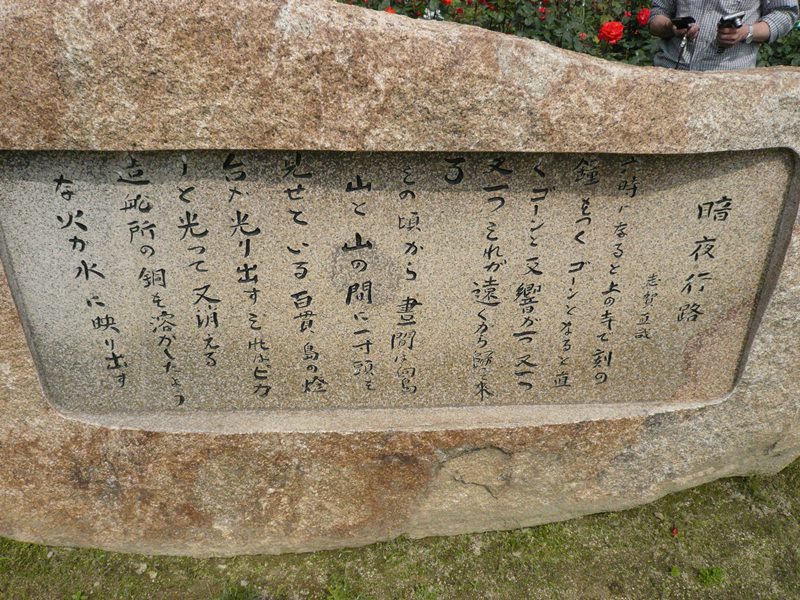 暗夜行路
志賀直哉
六時になると上の寺で刻の
鐘をつく ゴーンとなると直
ぐゴーンと反響が一つ 又一つ
又一つ それが遠くから帰つて来
る
その頃から 昼間は向島
山と山の間に一寸頭を
見せている百貫島の燈
台が光り出す それはピカ
リと光つて又消える
造船所の銅を溶かしたよう
な火が水に映り出す